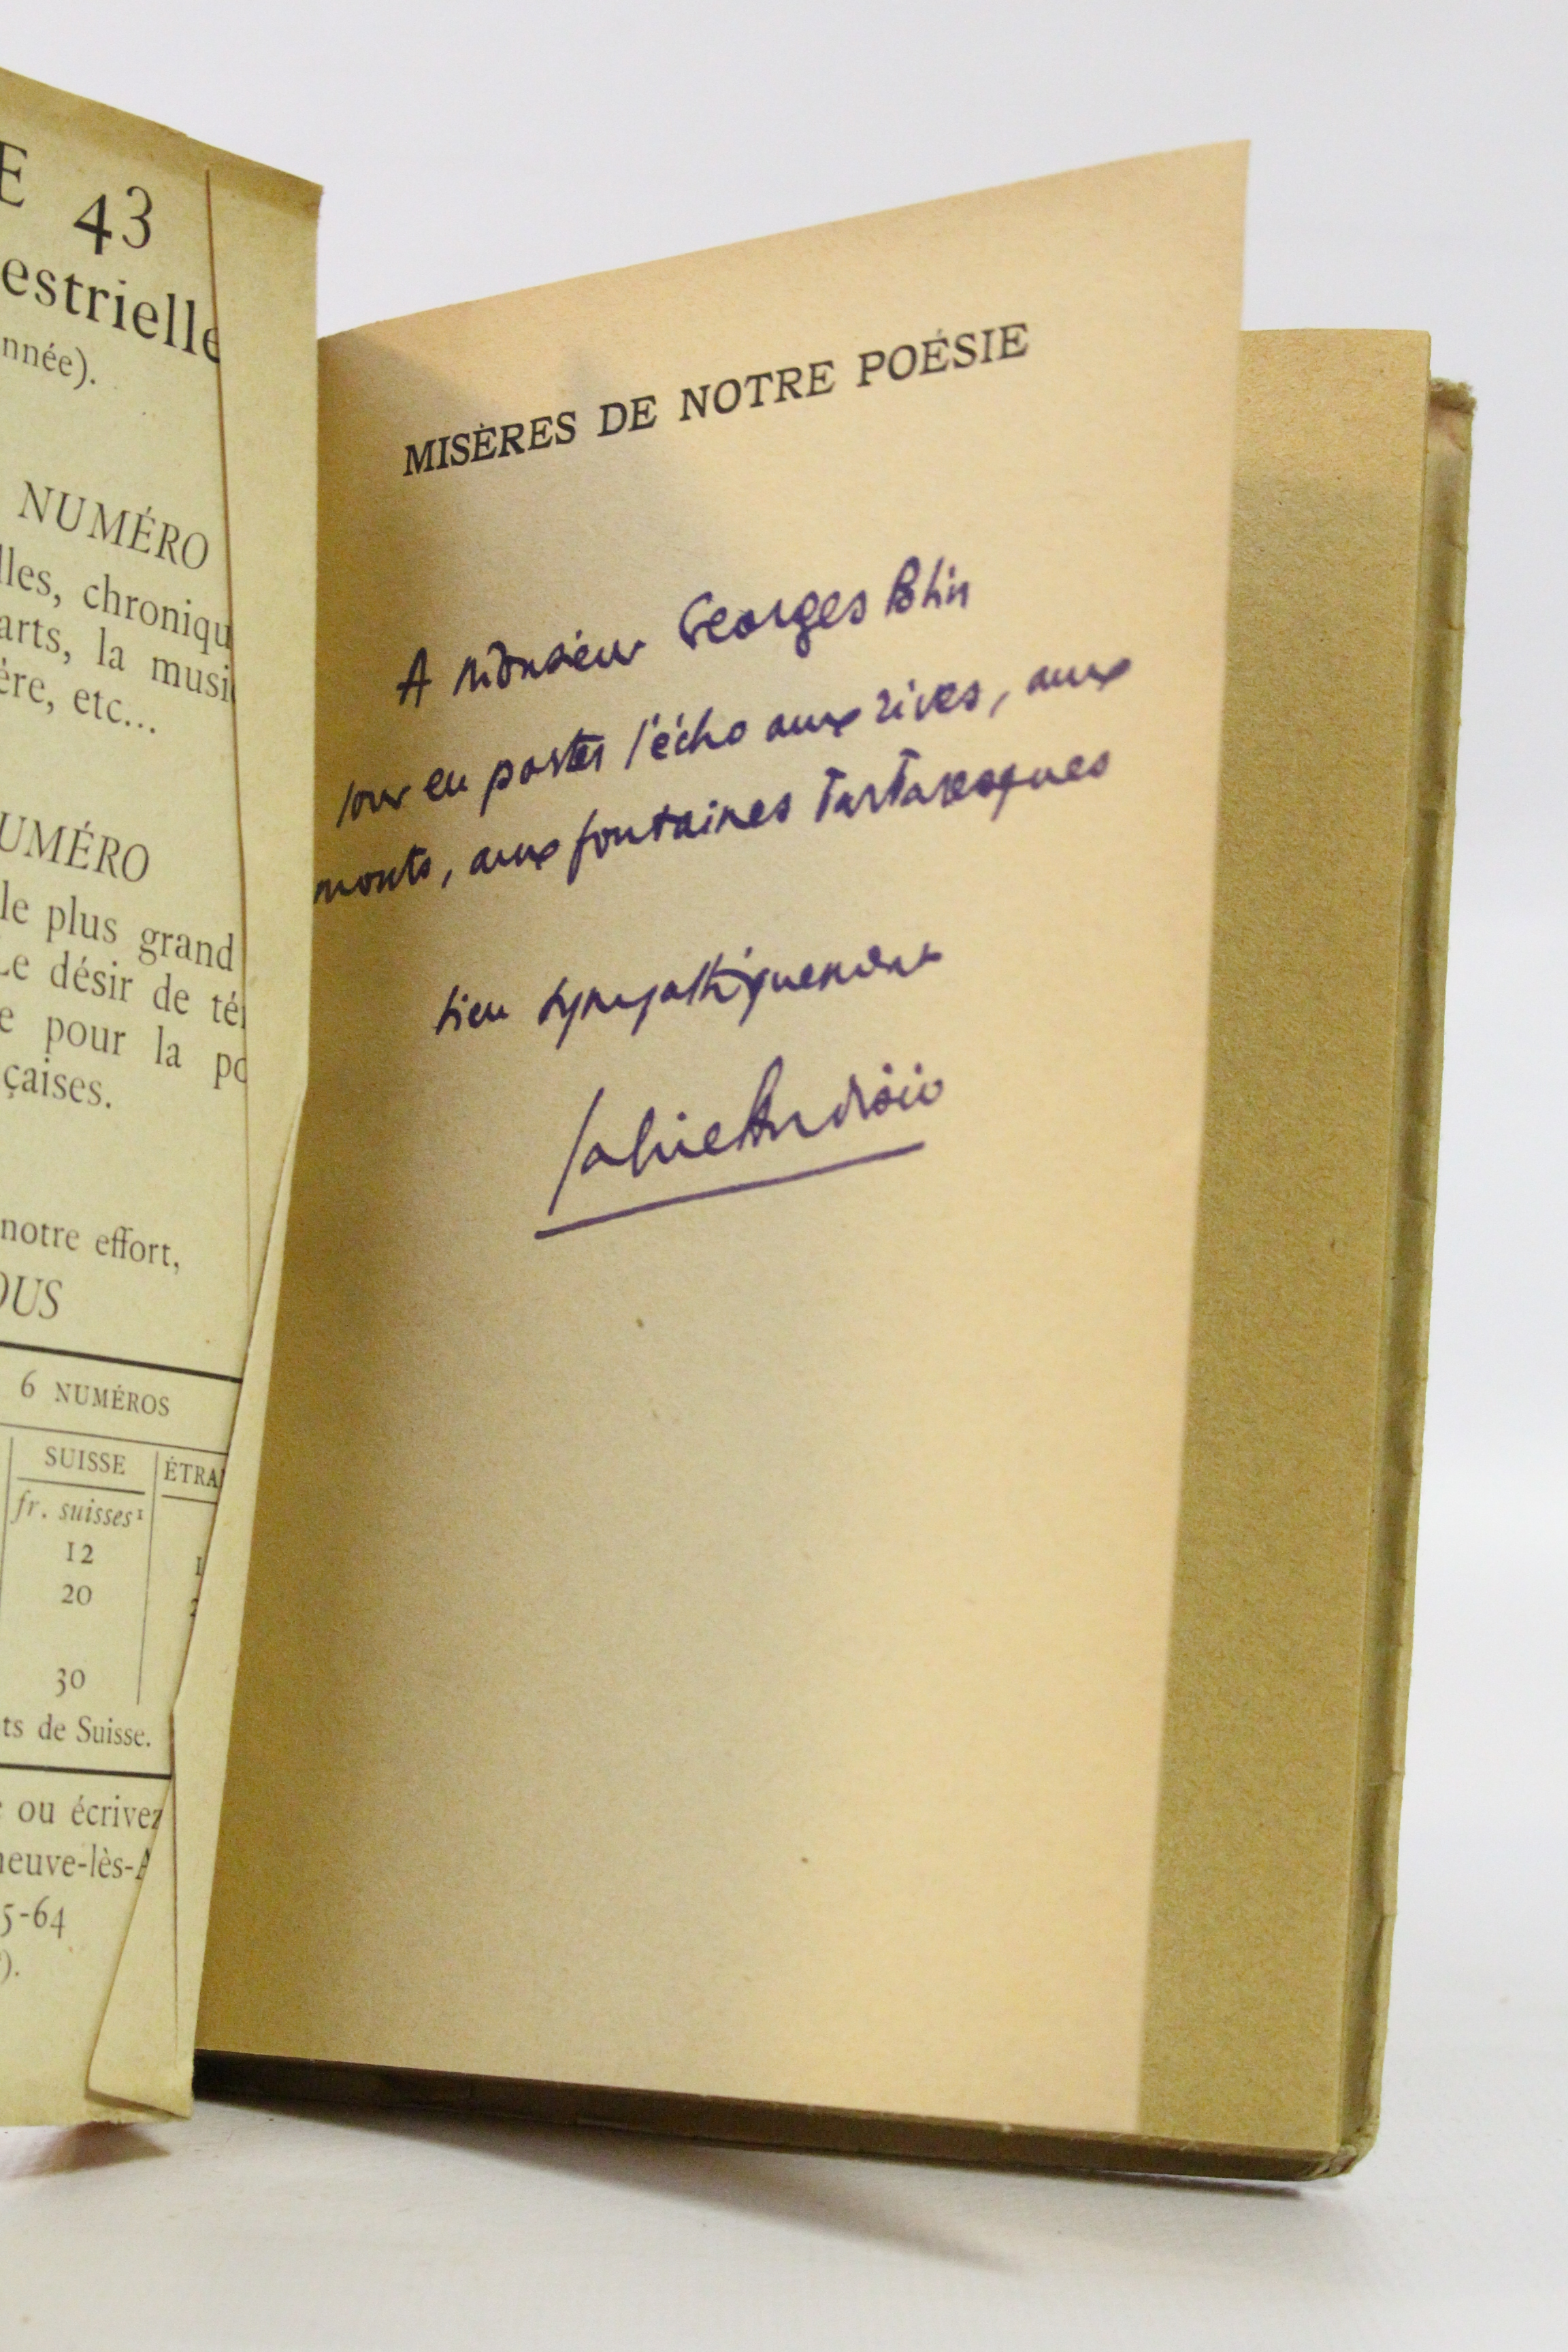 E 43
estrielle
nnée).
NUMÉRO
lles, chroniqu
arts, la musi
ère, etc...
UMÉRO
le plus grand
Le désir de té
e pour la po
çaises.
notre effort,
OUS
6 NUMÉROS
SUISSE ÉTRA
fr. suisses¹
12
20
30
ts de Suisse.
ou écrivez
neuve-lès-A
5-64
).
MISÈRES DE NOTRE POÉSIE
A Monsieur Georges Blin
pour en porter l'écho aux rives, aux
monts, aux fontaines tartaresques
bien sympathiquement
Gabriel Audisio